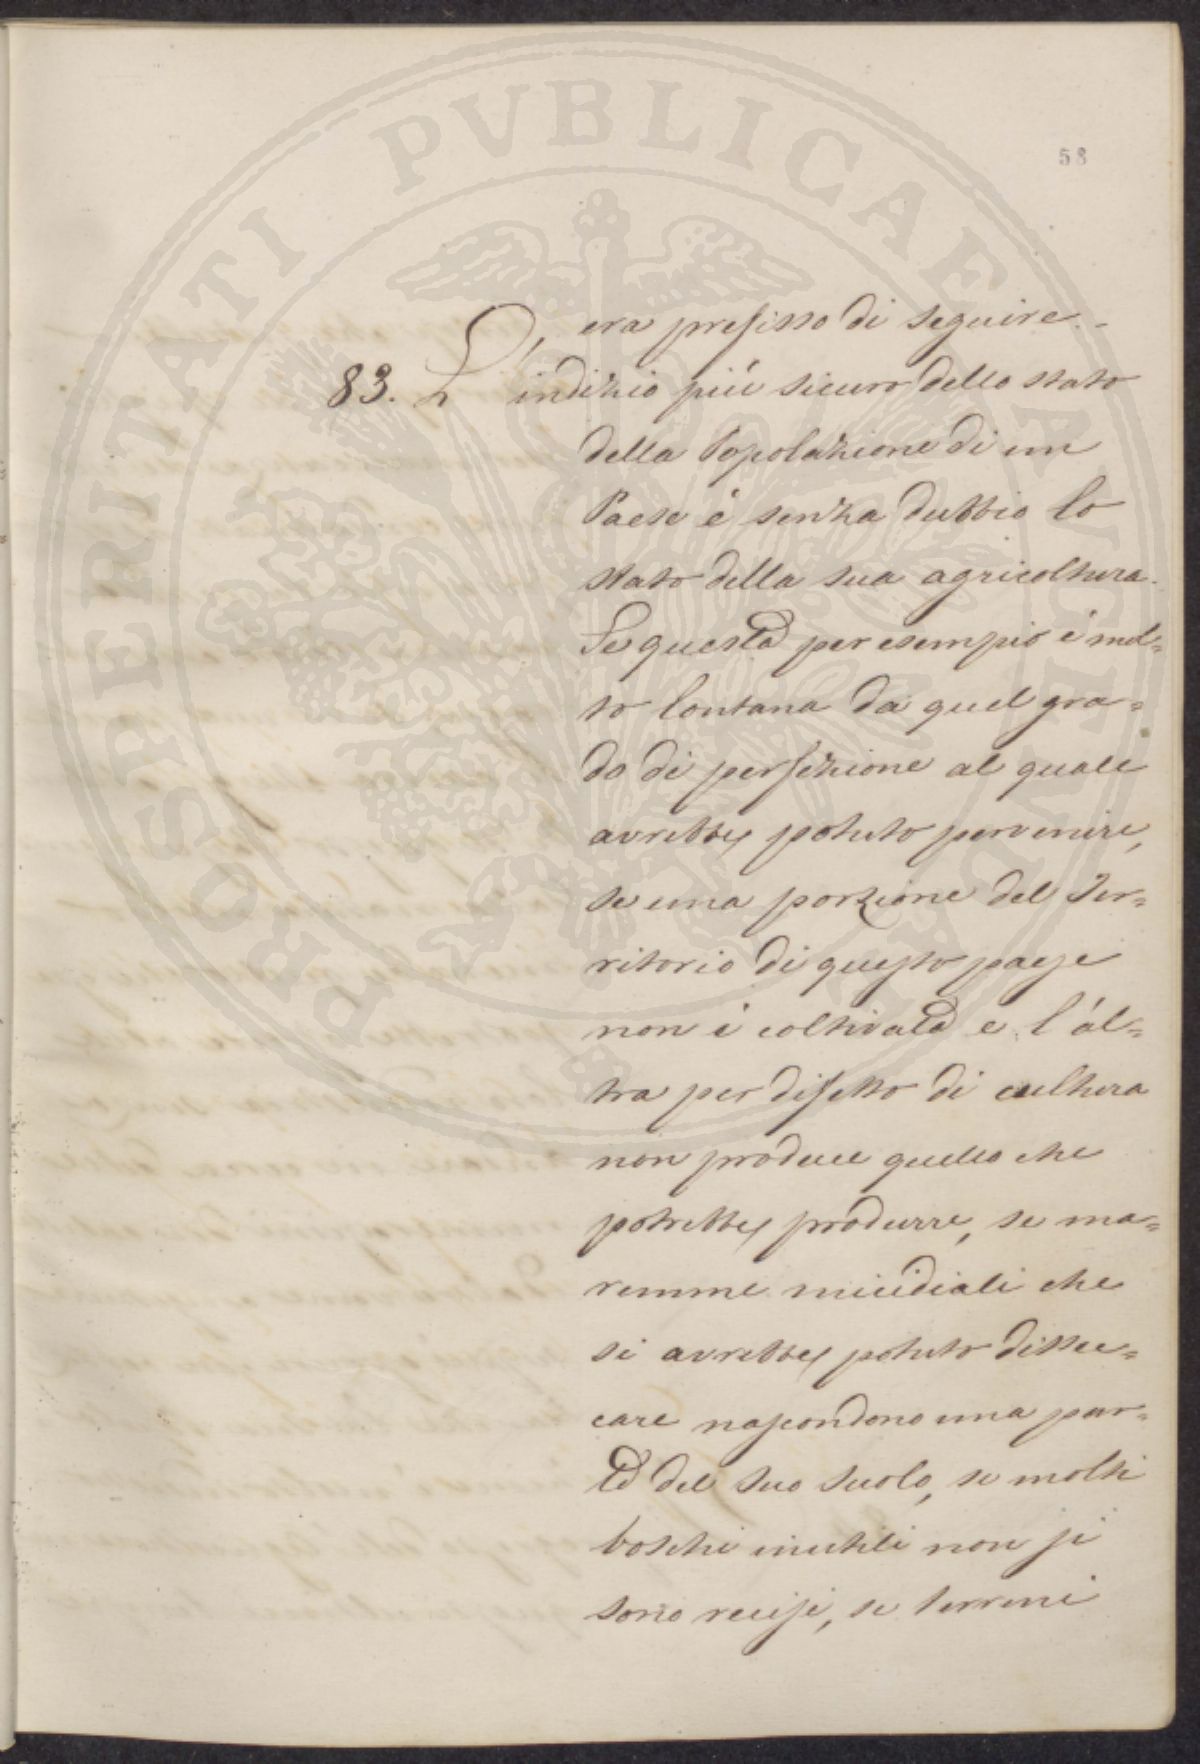 PROSPERITATI PVBLICAE AVGENDAE
58
era prefisso di seguire.
83. L'indizio più sicuro dello stato
della Popolazione di un
Paese è senza dubbio lo
stato della sua agricoltura.
Se questa per esempio è mol=
to lontana da quel gra=
do di perfezione al quale
avrebbe potuto pervenire,
se una porzione del Ter=
ritorio di questo paese
non è coltivata e l'al=
tra per difetto di cultura
non produce quello che
potrebbe produrre, se ma=
remme micidiali che
si avrebbe potuto dissec=
care nascondono una par=
te del suo suolo, se molti
boschi inutili non si
sono recisi, se terreni